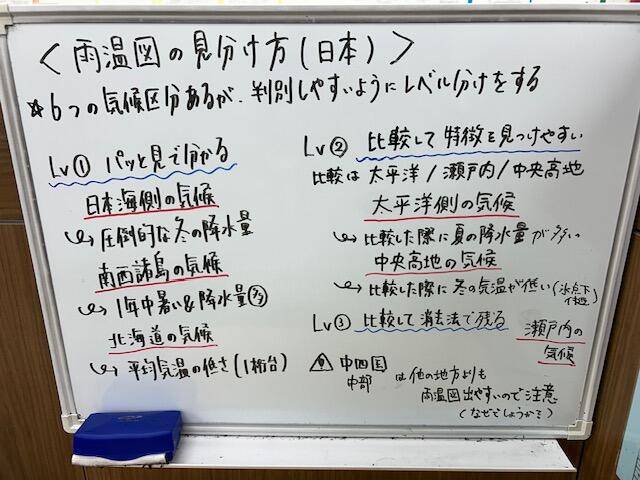 ＜雨温図の見分け方(日本)＞
☆6つの気候区分あるが、判別しやすいようにレベル分けをする
Lv① パッと見で分かる
日本海側の気候
↪圧倒的な冬の降水量
南西諸島の気候
↪1年中暑い&降水量㊂
北海道の気候
↪平均気温の低さ(1桁台)
Lv② 比較して特徴を見つけやすい
比較は太平洋/瀬戸内/中央高地
太平洋側の気候
↪比較した際に夏の降水量が多い
中央高地の気候
↪比較した際に冬の気温が低い(氷点下
Lv③ 比較して消去法で残る
瀬戸内の
気候
中四国
中部 は他の地方よりも
雨温図出やすいので注意
(なぜでしょうか?)